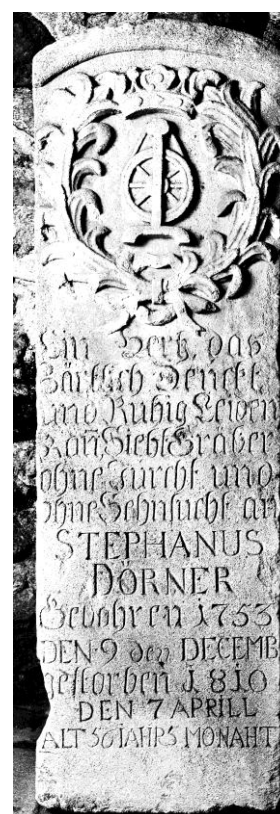 Ein Hertz das
Zärtlich Denckt
und Ruhig Leiden
Kañ Sieht Gräber
ohne Furcht und
ohne Sehnsucht an
STEPHANUS
DÖRNER
Gebohren 1753
DEN 9 den DECEMB
gestorben 1810
DEN 7 APRILL
ALT 56 IAHR 3 MONAHT